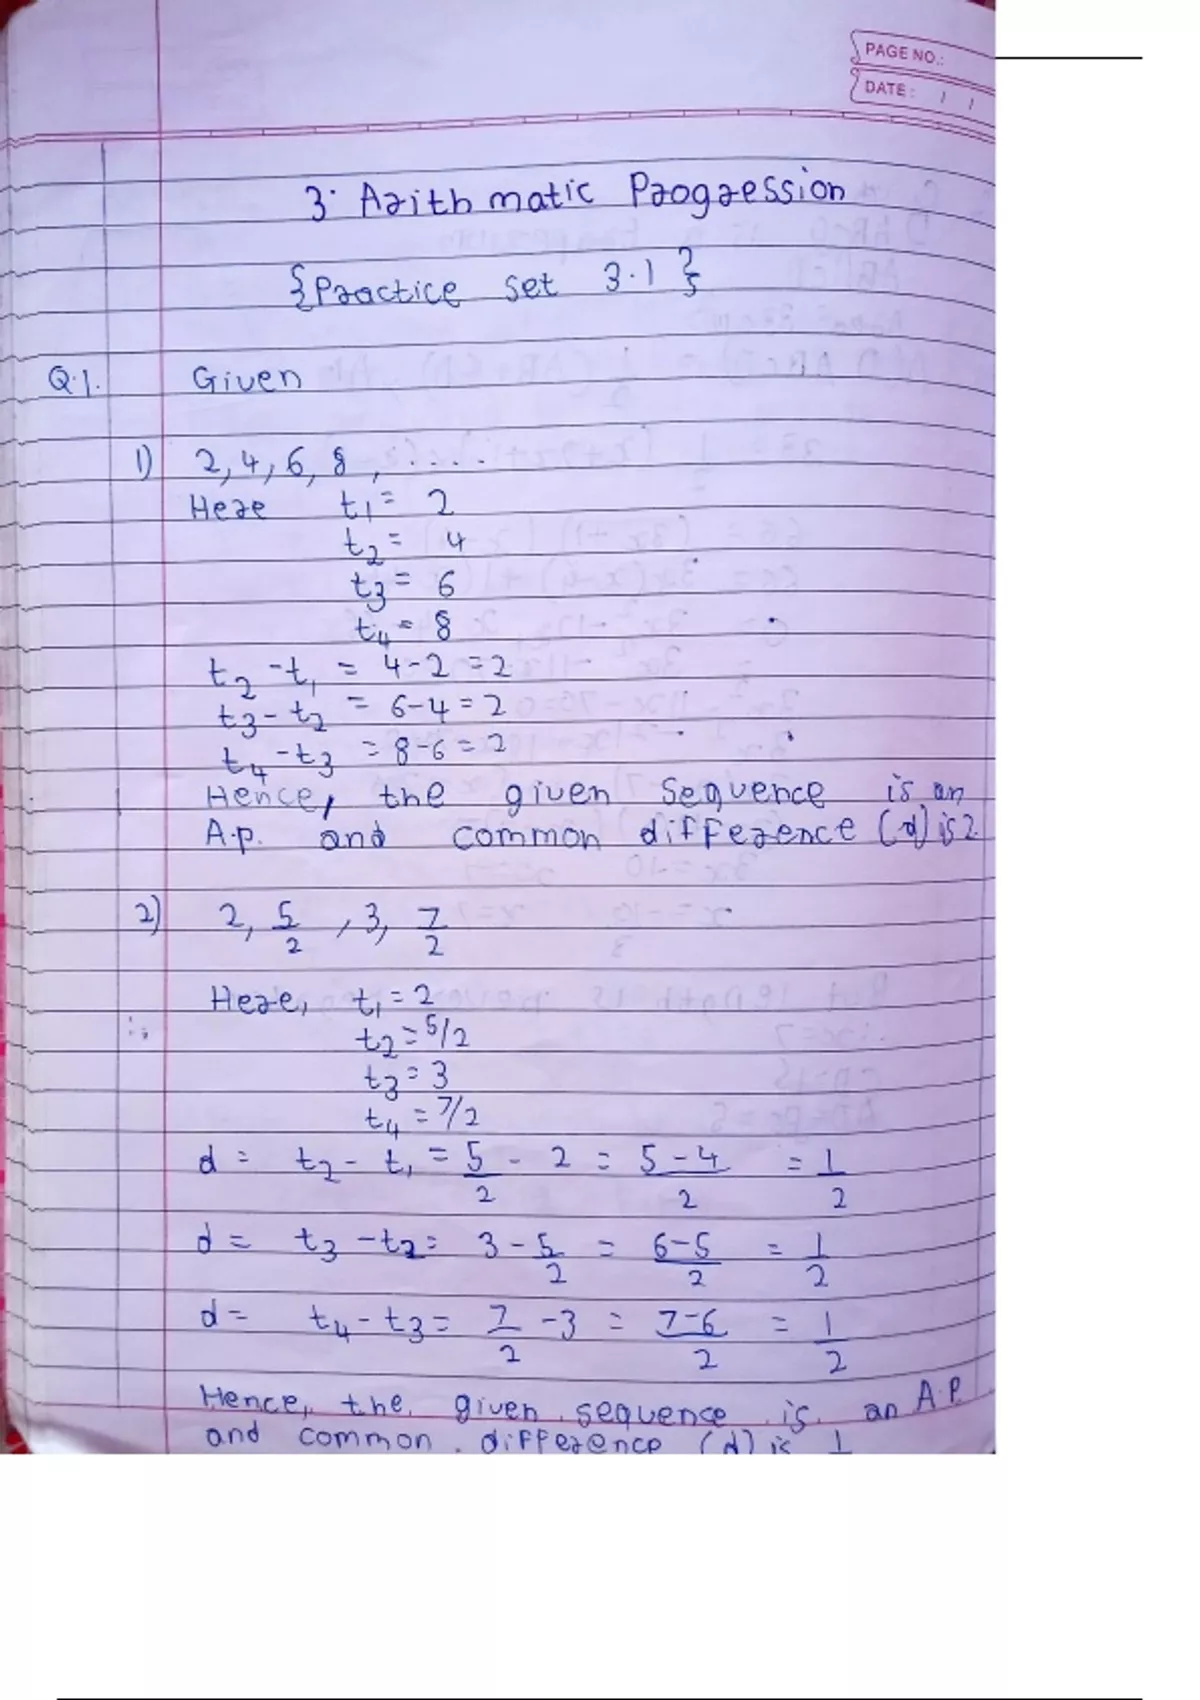 PAGE NO.:
DATE: / /
3. Arithmatic Progression
{Practice set 3.1}
Q.1. Given
1) 2, 4, 6, 8, ....
Here t₁ = 2
t₂ = 4
t₃ = 6
t₄ = 8
t₂ - t₁ = 4-2 = 2
t₃ - t₂ = 6-4 = 2
t₄ - t₃ = 8-6 = 2
Hence, the given sequence is an
A.p. and common difference (d) is 2
2) 2, 5/2, 3, 7/2
Here, t₁ = 2
∴ t₂ = 5/2
t₃ = 3
t₄ = 7/2
d = t₂ - t₁ = 5/2 - 2 = 5-4/2 = 1/2
d = t₃ - t₂ = 3 - 5/2 = 6-5/2 = 1/2
d = t₄ - t₃ = 7/2 - 3 = 7-6/2 = 1/2
Hence, the given sequence is an A.P.
and common difference (d) is 1